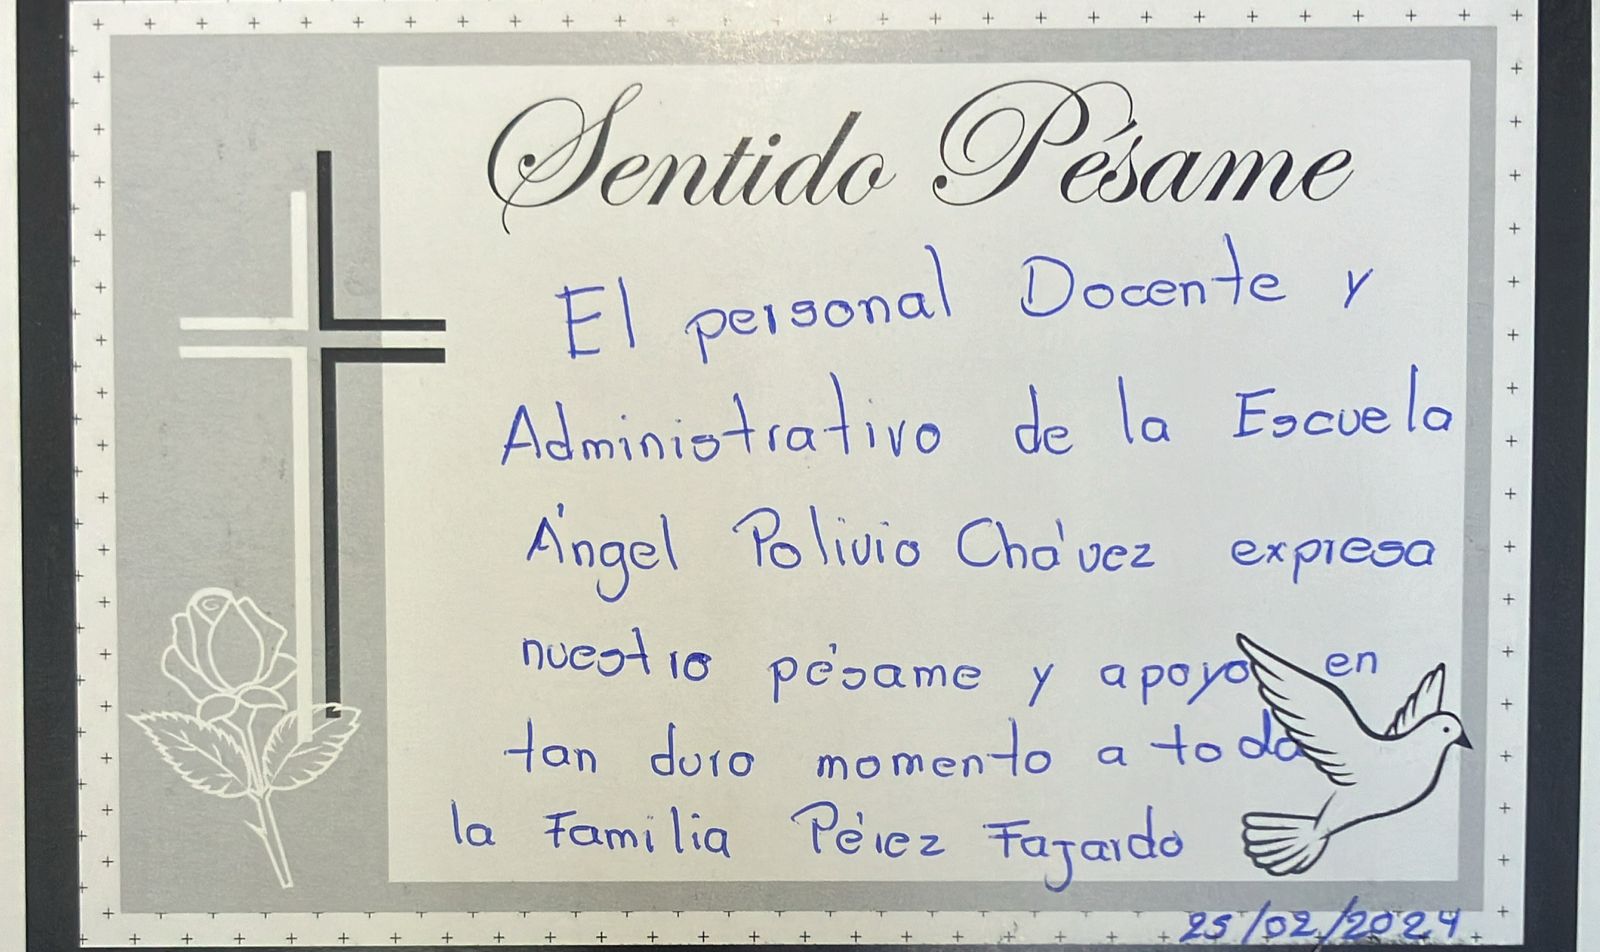 Sentido Pésame
El personal Docente y
Administrativo de la Escuela
Ángel Polivio Chávez expresa
nuestro pésame y apoyo en
tan duro momento a toda
la Familia Pérez Fajardo
25/02/2024